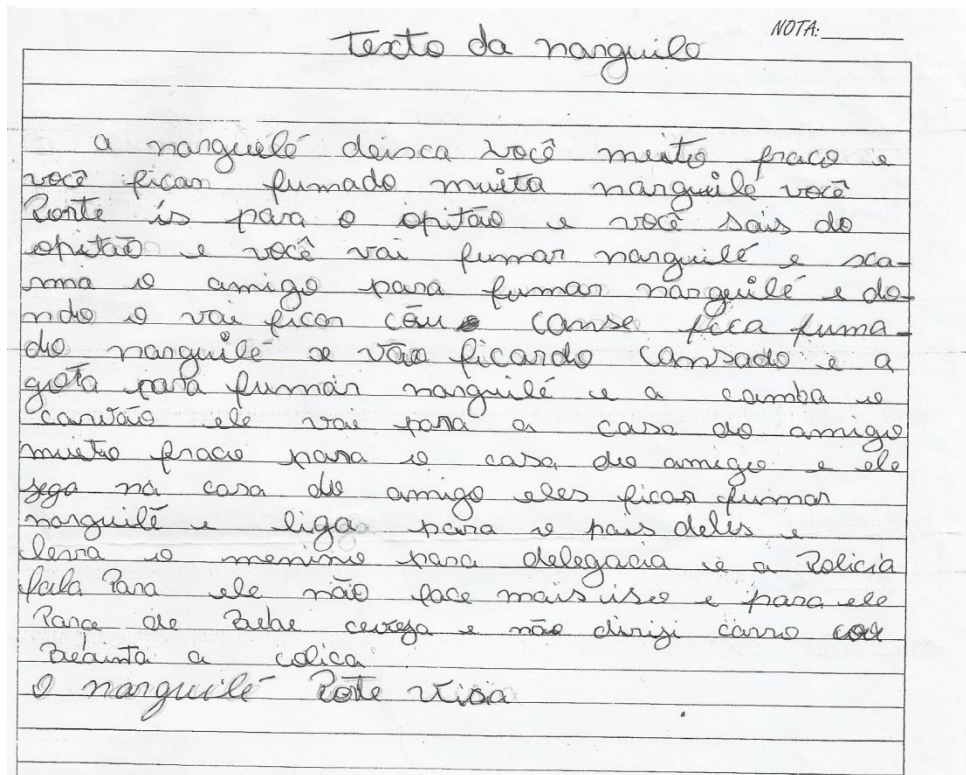 NOTA:
texto da narguilo
a narguelé deisca você muito fraco e
você ficar fumado muita narguilé você
Porte is para o opitão e você sais do
opitão e você vai fumar narguilé e xca-
ma o amigo para fumar narguilé e do-
ndo o vai ficar canse fica fuma-
do narguilé e vão ficardo cansado e a
gota para fumar narguilé e a camba o
carvão ele vai para a casa do amigo
muito fraco para o casa do amigo e ele
sega na casa do amigo eles ficar fumar
narguilé e liga para o pais deles e
leva o menino para delegacia e a Policia
fala Para ele não face mais iso e para ele
Para de Bebe cerveja e não dirigi carro
a colica
O narguilé Porte visia